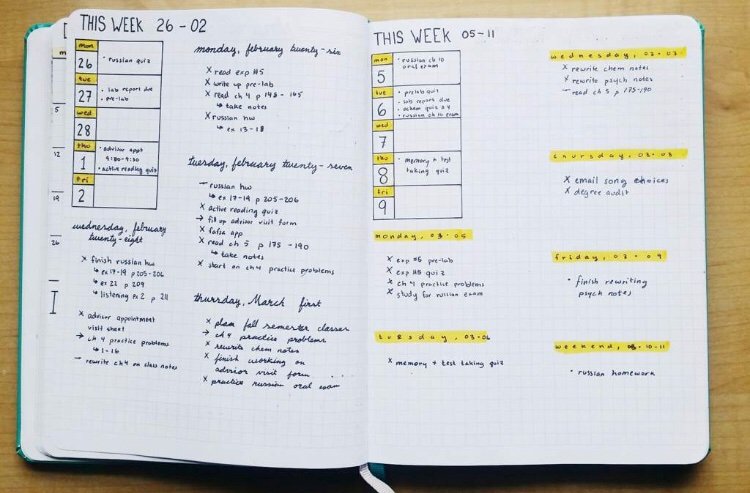 THIS WEEK 26-02
mon
26
• russian quiz
tue
27
• lab report due
• pre-lab
wed
28
thu
1
• advisor appt
• active reading quiz
fri
2
monday, february twenty-six
x read exp #5
x write up pre-lab
x read ch 4 p 148 - 165
↳ take notes
x russian hw
↳ ex 13-18
tuesday, february twenty-seven
— russian hw
↳ ex 17-19 p 205-206
x active reading quiz
→ fill up advisor visit form
x fafsa app
x read ch 5 p 175 - 190
↳ take notes
x start on ch 4 practice problems
wednesday, february
twenty-eight
x finish russian hw
↳ ex 17-19 p 205-206
↳ ex 22 p 209
↳ listening ex 2 p 211
x advisor appointment
visit sheet
→ ch 4 practice problems
↳ 1-16
→ rewrite ch 4 on class notes
thursday, March first
x plan fall semester classes
→ ch 4 practice problems
x rewrite chem notes
x finish working on
advisor visit form
x practice russian oral exam
5
12
19
26
THIS WEEK 05-11
mon
5
• russian ch 10
oral exam
tue
6
• prelab quiz
• lab report due
• russian ch 10 exam
wed
7
thu
8
• memory + test
taking quiz
fri
9
monday, 03-05
x exp #6 pre-lab
x exp #5 quiz
x ch 4 practice problems
x study for russian exam
tuesday, 03-06
x memory + test taking quiz
wednesday, 03-07
x rewrite chem notes
x rewrite psych notes
— read ch 5 p 175-190
thursday, 03-08
x email song choices
x degree audit
friday, 03-09
• finish rewriting
psych notes
weekend, 03-10-11
• russian homework